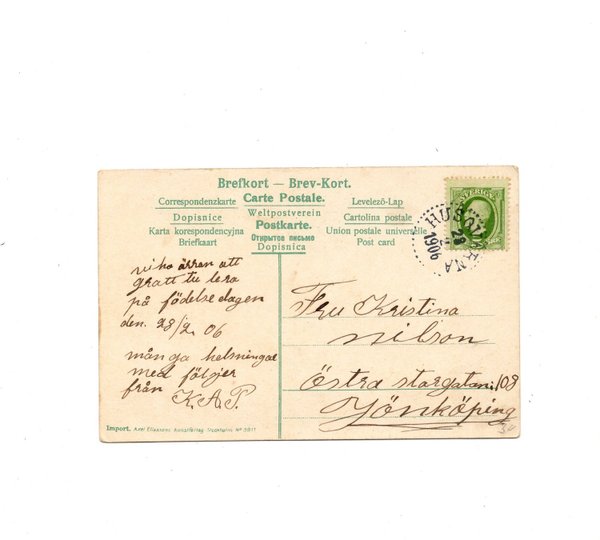 Brefkort — Brev-Kort.
Correspondenzkarte Carte Postale. Levelező-Lap
Dopisnice Weltpostverein Cartolina postale
Karta korespondencyjna Postkarte. Union postale universelle
Briefkaart Открытое письмо Post card
Dopisnica
SVERIGE
HUSQVARNA
28
2
1906
viho ärran att
gratt tu lera
på födelsedagen
den. 28/2. 06
många helsningar
med följer
från
K.A.P.
Fru Kristina
nilson
Östra storgatan. 108
Jönköping
Import. Axel Eliassons Konstförlag Stockholm. No 3811